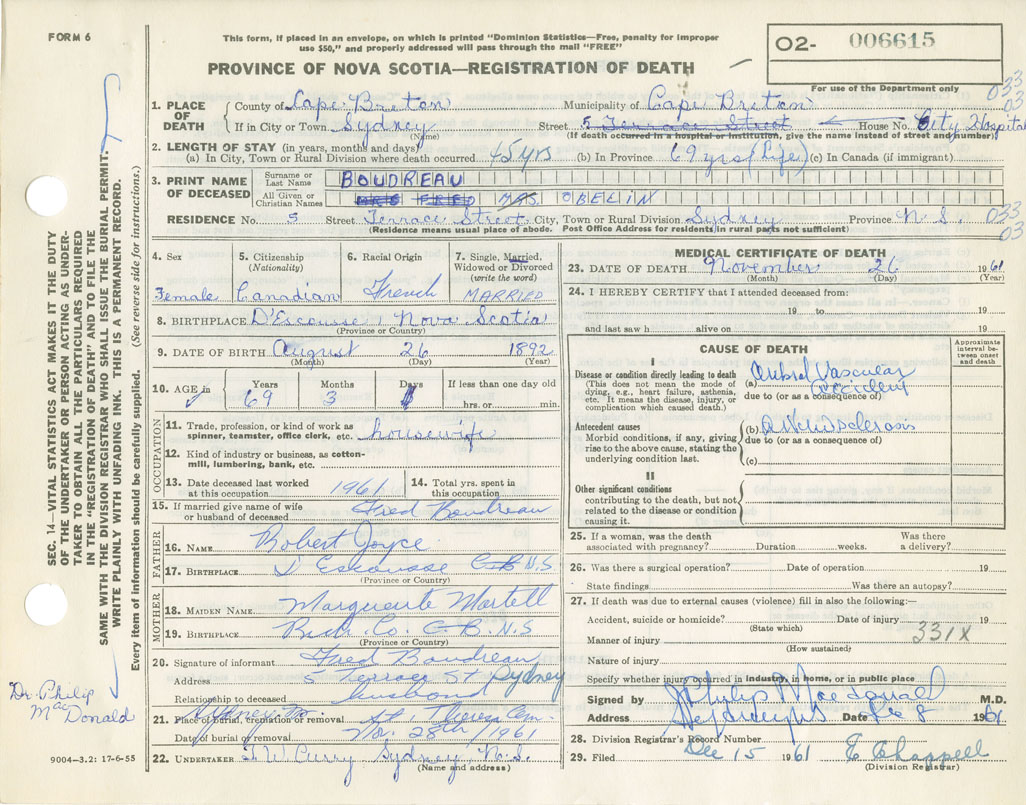 FORM 6
This form, if placed in an envelope, on which is printed "Dominion Statistics—Free, penalty for improper
use $50," and properly addressed will pass through the mail "FREE"
O2- 006615
PROVINCE OF NOVA SCOTIA—REGISTRATION OF DEATH
For use of the Department only
033
03
1. PLACE OF DEATH
County of Cape Breton Municipality of Cape Breton
If in City or Town Sydney Street 5 Terrace Street House No. City Hospital
(Name) (If death occurred in a hospital or institution, give the name instead of street and number)
2. LENGTH OF STAY (in years, months and days)
(a) In City, Town or Rural Division where death occurred 45 yrs (b) In Province 69 yrs (Life) (c) In Canada (if immigrant)
3. PRINT NAME OF DECEASED
Surname or Last Name BOUDREAU
All Given or Christian Names MRS FRIED MRS. OBELIN
RESIDENCE No. 5 Street Terrace Street City, Town or Rural Division Sydney Province N.S. 033
03
(Residence means usual place of abode. Post Office Address for residents in rural parts not sufficient)
4. Sex Female
5. Citizenship (Nationality) Canadian
6. Racial Origin French
7. Single, Married, Widowed or Divorced (write the word) MARRIED
8. BIRTHPLACE D'Escousse, Nova Scotia
(Province or Country)
9. DATE OF BIRTH August 26 1892
(Month) (Day) (Year)
10. AGE in Years 69 Months 3 Days If less than one day old hrs. or min.
OCCUPATION
11. Trade, profession, or kind of work as spinner, teamster, office clerk, etc. housewife
12. Kind of industry or business, as cotton-mill, lumbering, bank, etc.
13. Date deceased last worked at this occupation 1961
14. Total yrs. spent in this occupation
15. If married give name of wife or husband of deceased Fred Boudreau
FATHER
16. NAME Robert Joyce
17. BIRTHPLACE D'Escousse C.B N.S
(Province or Country)
MOTHER
18. MAIDEN NAME Marguerite Martell
19. BIRTHPLACE Rich. Co. C.B. N.S
(Province or Country)
20. Signature of informant Fred Boudreau
Address 5 Terrace St Sydney
Relationship to deceased husband
21. Place of burial, cremation or removal St. Theresa Cem.
Date of burial or removal Nov. 28th/1961
22. UNDERTAKER T W Curry Sydney, N.S.
(Name and address)
MEDICAL CERTIFICATE OF DEATH
23. DATE OF DEATH November 26 1961
(Month) (Day) (Year)
24. I HEREBY CERTIFY that I attended deceased from:
19 to 19
and last saw h alive on 19
CAUSE OF DEATH
Approximate interval between onset and death
I
Disease or condition directly leading to death
(This does not mean the mode of dying, e.g., heart failure, asthenia, etc. It means the disease, injury, or complication which caused death.)
(a) Cerebral Vascular accident
due to (or as a consequence of)
Antecedent causes
Morbid conditions, if any, giving rise to the above cause, stating the underlying condition last.
(b) Arteriosclerosis
due to (or as a consequence of)
(c)
II
Other significant conditions
contributing to the death, but not related to the disease or condition causing it.
25. If a woman, was the death associated with pregnancy? Duration weeks. Was there a delivery?
26. Was there a surgical operation? Date of operation 19
State findings Was there an autopsy?
27. If death was due to external causes (violence) fill in also the following:—
Accident, suicide or homicide? Date of injury 19
(State which)
331X
Manner of injury
(How sustained)
Nature of injury
Specify whether injury occurred in industry, in home, or in public place
Signed by Philip Macdonald M.D.
Address Date Dec 8 1961
28. Division Registrar's Record Number
29. Filed Dec 15 1961 E Chappell
(Division Registrar)
SEC. 14—VITAL STATISTICS ACT MAKES IT THE DUTY
OF THE UNDERTAKER OR PERSON ACTING AS UNDER-
TAKER TO OBTAIN ALL THE PARTICULARS REQUIRED
IN THE "REGISTRATION OF DEATH" AND TO FILE THE
SAME WITH THE DIVISION REGISTRAR WHO SHALL ISSUE THE BURIAL PERMIT.
WRITE PLAINLY WITH UNFADING INK. THIS IS A PERMANENT RECORD.
Every item of information should be carefully supplied. (See reverse side for instructions.)
Dr. Philip
MacDonald
9004-3.2: 17-6-55